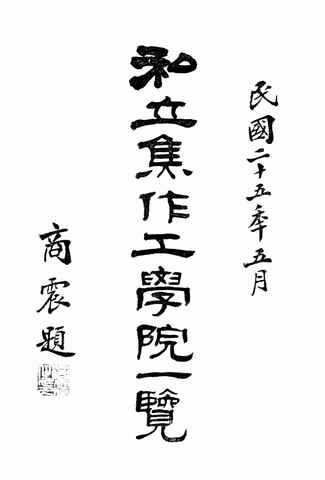 民國二十五年五月
私立焦作工學院一覽
商震題